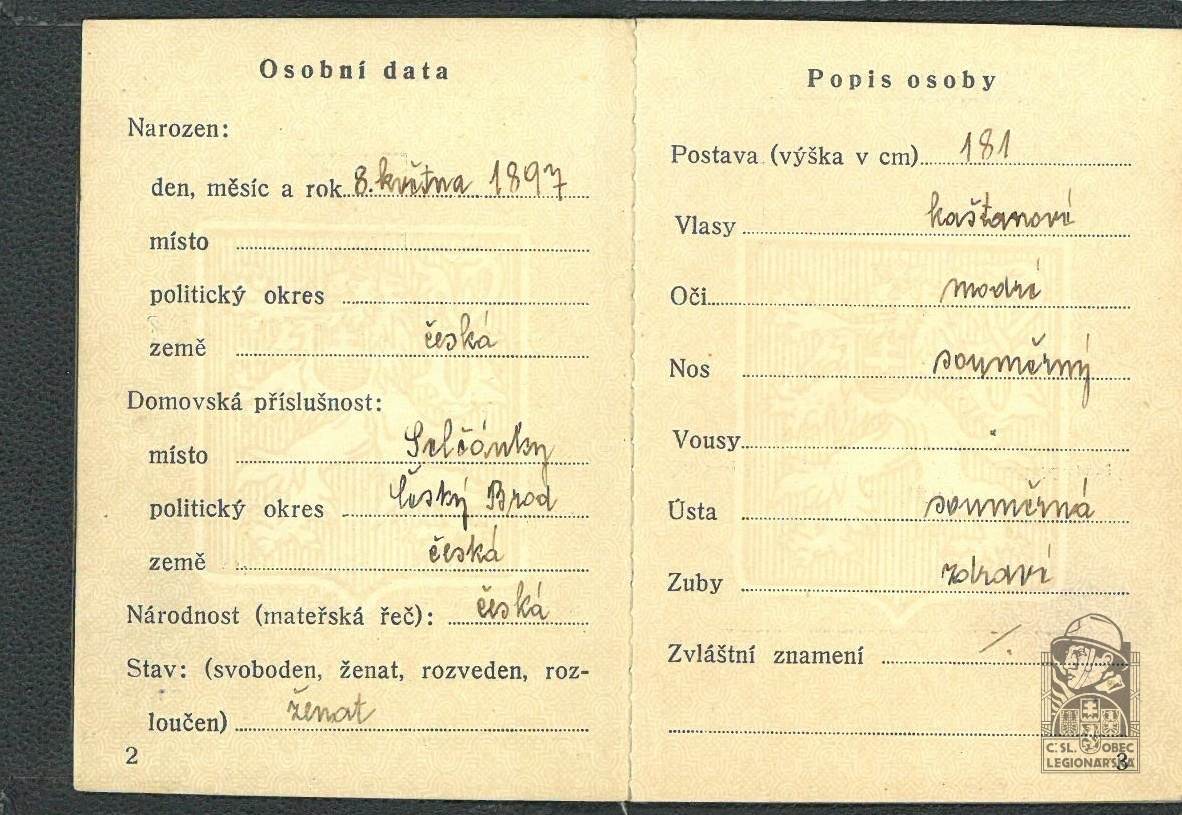 Osobní data
Narozen:
den, měsíc a rok 8. května 1897
místo
politický okres
země česká
Domovská příslušnost:
místo
politický okres Český Brod
země česká
Národnost (mateřská řeč): česká
Stav: (svoboden, ženat, rozveden, roz-
loučen) ženat
2
Popis osoby
Postava (výška v cm) 181
Vlasy kaštanové
Oči modré
Nos souměrný
Vousy
Ústa souměrná
Zuby zdravé
Zvláštní znamení
Č.SL. OBEC
LEGIONÁŘSKÁ
3